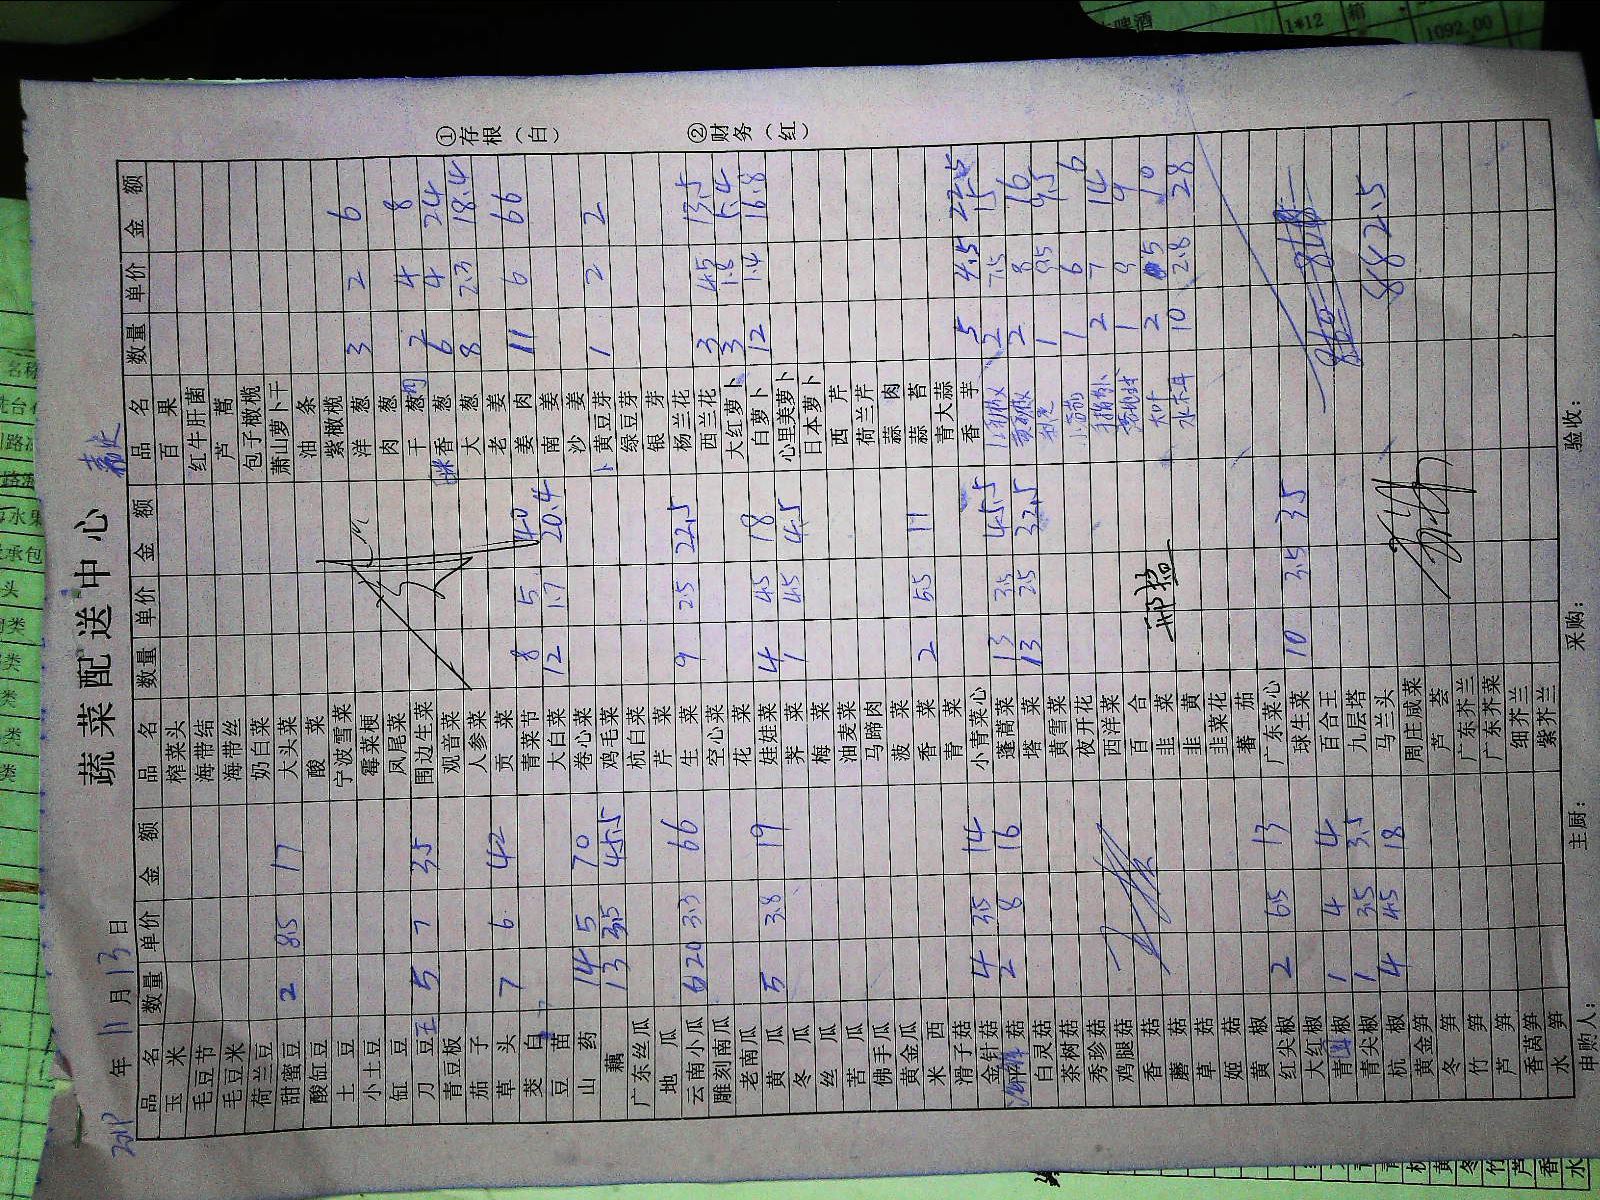 蔬菜配送中心
年 11 月 13 日
品 名 数量 单价 金 额 品 名 数量 单价 金 额 品 名 数量 单价 金 额
玉 米 榨菜头 百 果
毛豆节 海带结 红牛肝菌
毛豆米 海带丝 芦 蒿
荷兰豆 奶白菜 包子橄榄
甜蜜豆 2 8.5 17 大头菜 萧山萝卜干
酸缸豆 酸 菜 油 条
土 豆 宁波雪菜 紫橄榄
小土豆 霉菜梗 洋 葱 3 2 6
缸 豆 凤尾菜 肉 葱
刀 豆 5 7 35 围边生菜 干 葱 2 4 8
青豆板 观音菜 香 葱 6 4 24
茄 子 人参菜 大 葱 8 2.3 18.4
草 头 7 6 42 贡 菜 老 姜
茭 白 青菜节 8 5 40 姜 肉 11 6 66
豆 苗 大白菜 12 1.7 20.4 南 姜
山 药 14 5 70 卷心菜 沙 姜
藕 13 3.5 45.5 鸡毛菜 黄豆芽 1 2 2
广东丝瓜 杭白菜 绿豆芽
地 瓜 芹 菜 银 芽
云南小瓜 20 3.3 66 生 菜 9 2.5 22.5 杨兰花
雕刻南瓜 空心菜 西兰花 3 4.5 13.5
老南瓜 花 菜 大红萝卜 3 1.8 5.4
黄 瓜 5 3.8 19 娃娃菜 4 4.5 18 白萝卜 12 1.4 16.8
冬 瓜 荠 菜 1 4.5 4.5 心里美萝卜
丝 瓜 梅 菜 日本萝卜
苦 瓜 油麦菜 西 芹
佛手瓜 马蹄肉 荷兰芹
黄金瓜 菠 菜 蒜 肉
米 西 香 菜 2 5.5 11 蒜 苔
滑子菇 青 菜 青大蒜
金针菇 4 3.5 14 小青菜心 香 芋 5 4.5 22.5
菇 2 8 16 蓬蒿菜 13 3.5 45.5 2 7.5 15
白灵菇 塔 菜 13 2.5 32.5 2 8 16
茶树菇 黄雪菜 1 9.5 9.5
秀珍菇 夜开花 1 6 6
鸡腿菇 西洋菜 2 7 14
香 菇 百 合 1 9 9
蘑 菇 韭 菜 2 5 10
草 菇 韭 黄 水木耳 10 2.8 28
姬 菇 韭菜花
黄 椒 蕃 茄
红尖椒 2 6.5 13 广东菜心
大红椒 球生菜 10 3.5 35
青 椒 1 4 4 百合王
青尖椒 1 3.5 3.5 九层塔
杭 椒 4 4.5 18 马兰头 882.5
黄金笋 周庄咸菜
冬 笋 芦 荟
竹 笋 广东芥兰
芦 笋 广东芥菜
香莴笋 细芥兰
水 笋 紫芥兰
①存根（白）
②财务（红）
申购人： 主厨： 采购： 验收：
1*12 箱 1092.00